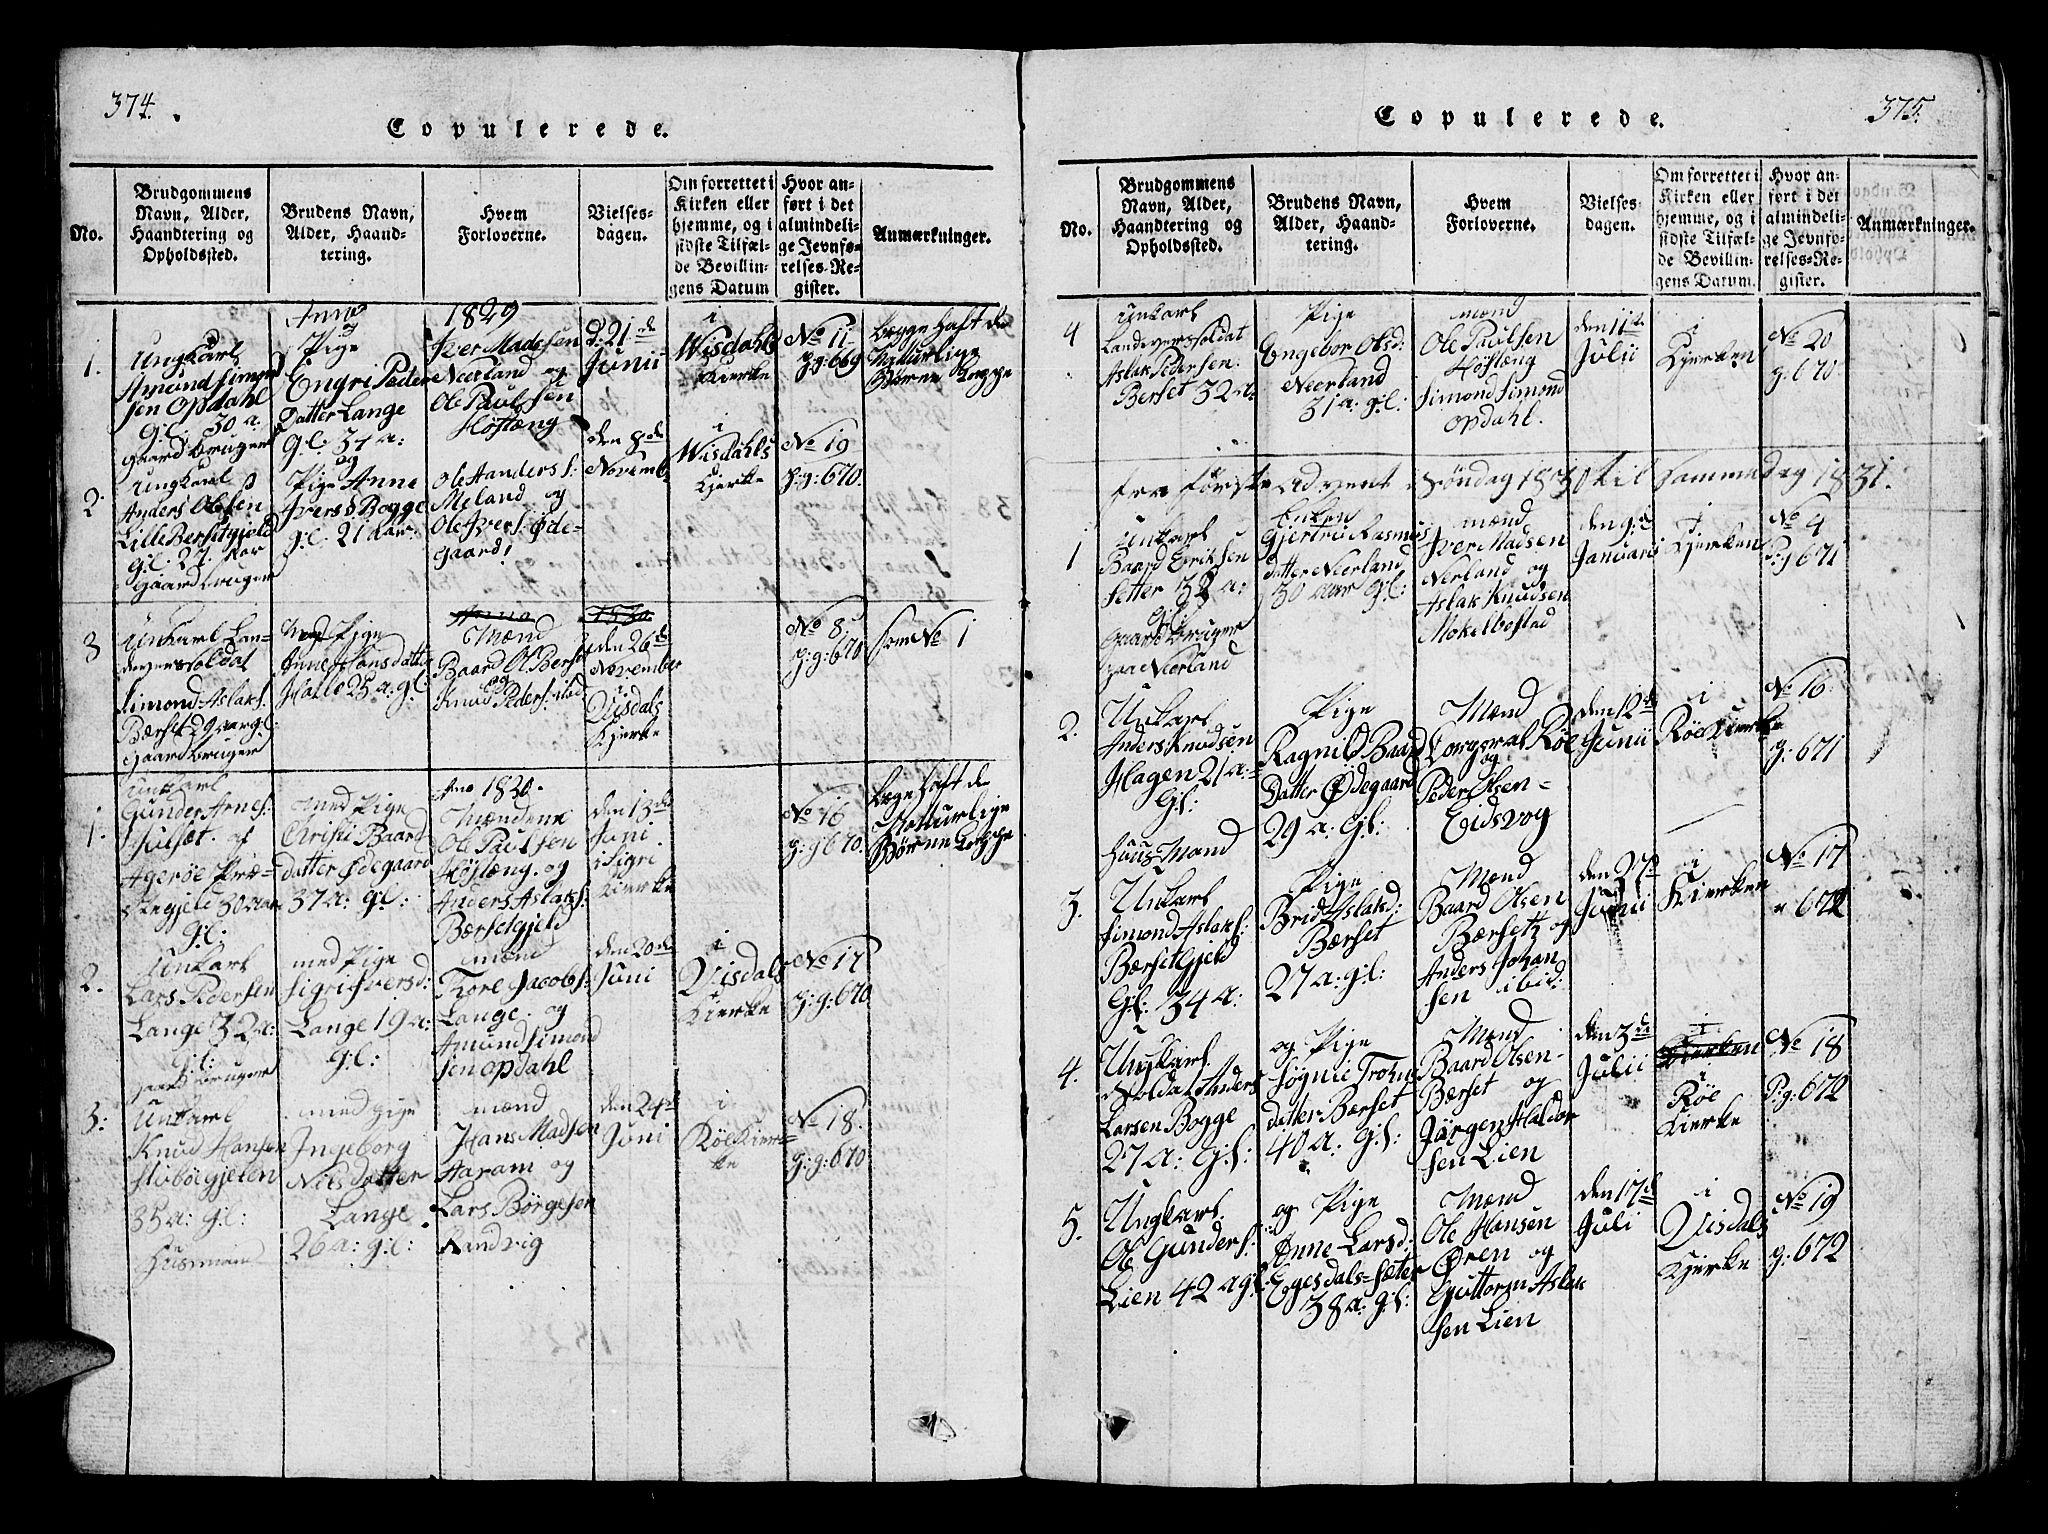 374.
Copulerede.
No.
Brudgommens
Navn, Alder,
Haandtering og
Opholdssted.
Brudens Navn,
Alder, Haand-
tering.
Hvem
Forloverne.
Vielses-
dagen.
Om forrettet i
Kirken eller
hjemme, og i
sidste Tilfæl-
de Bevillin-
gens Datum
Hvor an-
ført i det
almindeli-
ge Jevnfø-
relses-Re-
gister.
Anmærkninger.
Anno
1829
1.
Ungkarl
Amund Simon
sen Opdahl
gl. 30 a.
gaard bruger
og
Pige
Engri Peder
Datter Lange
gl. 37 a:
Iver Madssen
Neerland og
Ole Paulsen
Høstæng
d: 21 de
Junii
i
Wisdahls
Kierke
No 11
p.g: 669
begge haft de
Naturlige
Børne kopper
2.
Ungkarl
Anders Olsen
Lille Bersetgjeld
gl. 27 Aar
Gaard bruger
og
Pige Anne
Ivers D Bogge
gl. 21 aar.
Ole Anders s:
Meland og
Ole Ivers: Øde-
gaard
den 8de
Novemb.
i
Wisdahls
Kjerke
No 19
p:g: 670.
3
Unkarl Lan-
deversoldat
Simond Aslaks:
Bærset 29 aar gl:
gaard bruger
med Pige
Anne Hans datter
Halle 25 a: gl:
Anno
Mænd
Baard Ol Bersæ
og
Knud Peders: ibid
1830
den 26 de
November
i
Visdals
Kjerke
No 8
p:g: 670
som No 1
1.
Unkarl
Gunder Arnes:
Julsæt. af
Agerøe Præ-
stegjeld 30 Aar
gl.
med Pige
Christi Baard
datter Ødegaard
37 a: gl:
Ano 1830.
Mændene
Ole Paulsen
Høstæng. og
Anders Aslaks:
Bersetgjeld
den 13 de
Juni
i Sigri
Kierke
No 16
p: g 670.
begge haft de
Naturlige
Børne kopper
2.
Unkarl
Lars Pedersen
Lange 32 a:
gl:
gaard bruger
med Pige
Sigri Ivers d:
Lange 19 a:
gl:
mænd
Tore Jacobs:
Lange. og
Amund Simond
sen opdahl
den 20 de
Juni
i
Visdals
Kierke
No 17
p: g: 670
3:
Unkarl
Knud Hansen
Stubøegjelen
35 a: gl:
Husmand
med pige
Ingeborg
Nils datter
Lange
26 a: gl:
mænd
Hans Madsen
Haram og
Lars Børgesen
Randvig
den 24 de
Juni
i
Røe Kier-
ke
No 18.
p: g: 670
375.
Copulerede.
No.
Brudgommens
Navn, Alder,
Haandtering og
Opholdssted.
Brudens Navn,
Alder, Haand-
tering.
Hvem
Forloverne.
Vielses-
dagen.
Om forrettet i
Kirken eller
hjemme, og i
sidste Tilfæl-
de Bevillin-
gens Datum.
Hvor an-
ført i det
almindeli-
ge Jevnfø-
relses-Re-
gister.
Anmærkninger.
4
Unkarl
Landeverssoldat
Aslak Pedersen.
Berset 32 a.
Pige
Engebor Ols d:
Neerland
31 a: gl:
mænd
Ole Paulsen
Høstæng
Simond Simond
opdahl.
den 11 te
Julii
i
Kjerken
No 20
g: 670
fra første Advent Søndag 1830 til samme Dag 1831.
1
Unkarl
Baard Eriksen
Setter 32 a:
gl:
Gaard bruger
paa Neerland
Enken
Gjertru Rasmus
datter Neerland
30 aar gl:
mænd
Iver Madsen
Nerland og
Aslak Knudsen
Mokelbostad
den 9: de
Januari
i
Kjerken
No 4
P: g 671
2.
Unkarl
Anders Knudsen
Hagen 21 a:
Gl:
Huus Mand
Pige
Ragnild Baard
Datter Ødegaard
29 a: Gl:
Mænd
Røe
og
Peder Olsen
Eidsvog
den 12 de
Junii
i
Røe Kierke
No 16.
g: 671
3.
Unkarl
Simond Aslaks:
Bærsetgjeld
Gl: 34 a:
Pige
Brid Aslaks d:
Bærset
27 a: gl:
Mænd
Baard Olsen
Bærset og
Anders Johan
sen ibid:
den 27 de
Junii
i
Kierken
No 17
672
4.
Ungkarl.
Soldat Anders
Larsen Bogge
27 a: Gl:
og Pige
Søgnie Trohn
datter Bærset
40 a: Gl:
Mænd
Baard Olsen
Bærset og
Jørgen Haldor
sen Lien
den 3 de
Julii
i
Kierken
i
Røe
Kierke
No 18
P: g: 672
5.
Ungkarl.
Ole Gunders:
Lien 42 a gl.
og Pige
Anne Lars d:
Egesdals-sæter
38 a: gl:
Mænd
Ole Hansen
Øren og
Guttorm Aslak
sen Lien
den 17 de
Juli
i
Visdals
Kjerke
No 19
g: 672